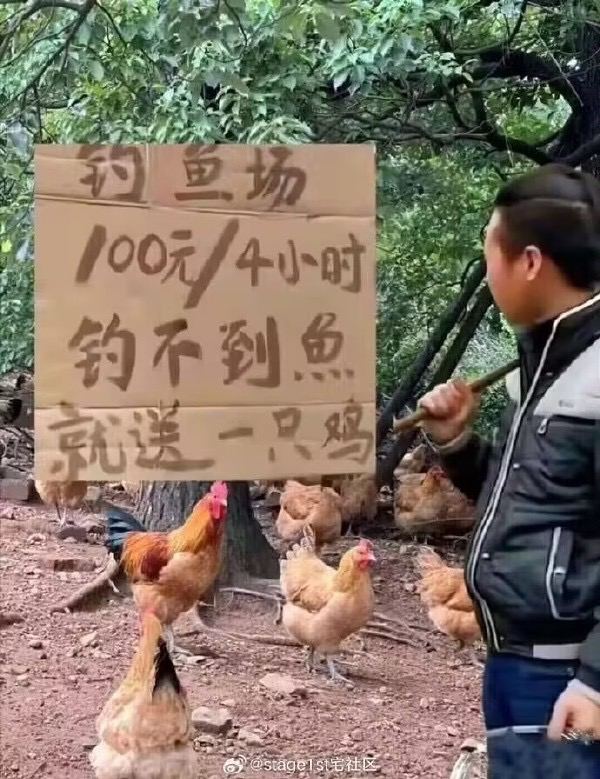 钓鱼场
100元/4小时
钓不到魚
就送一只鸡
@stage1st宅社区